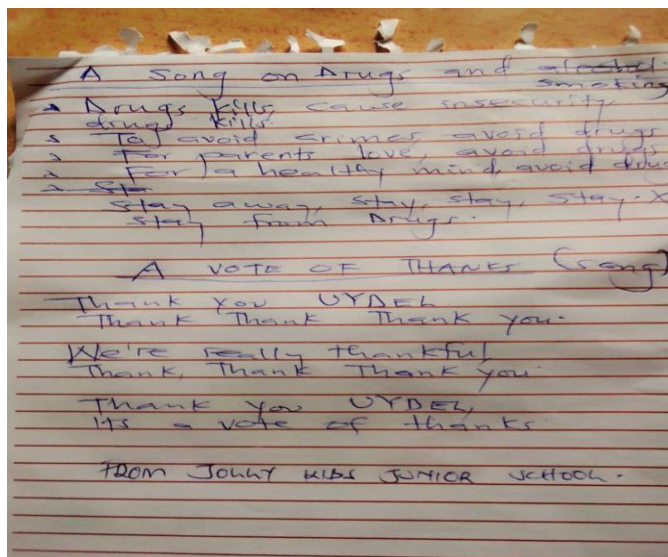 A Song on Drugs and alcohol.
smoking
Drugs kills, cause insecurity,
drugs kills.
To avoid crimes, avoid drugs
For parents love, avoid drugs
For a healthy mind, avoid drug
Stay away, stay, stay, stay. X
Stay from Drugs.
A VOTE OF THANKS (song)
Thank you UYDEL
Thank Thank Thank you.
We're really thankful
Thank, Thank Thank you
Thank you UYDEL,
Its a vote of thanks
FROM JOLLY KIDS JUNIOR SCHOOL.